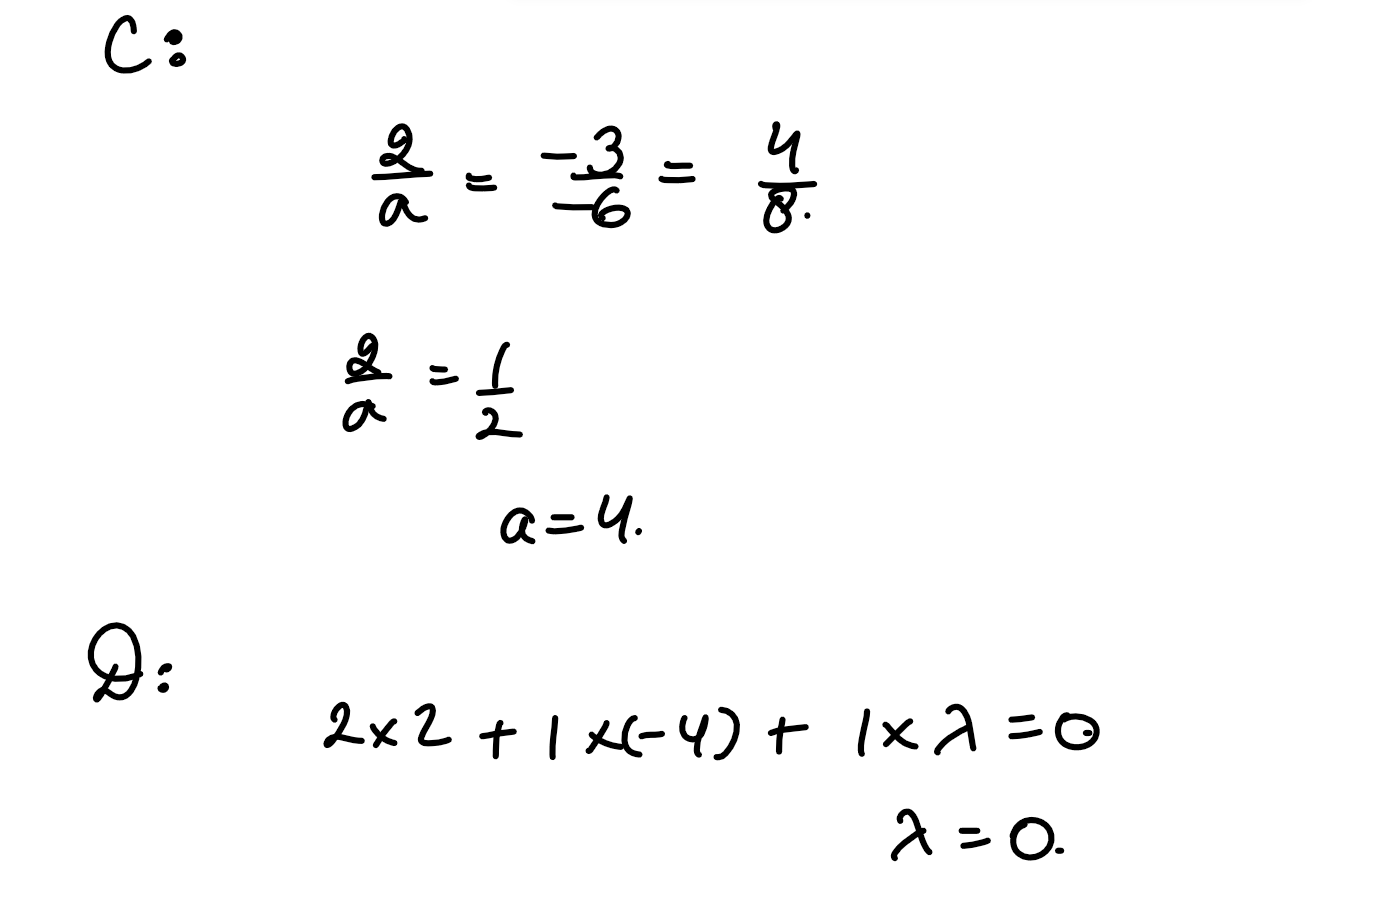 C:
2/a = -3/-6 = 4/8.
2/a = 1/2
a=4.
D:
2x2 + 1x(-4) + 1xλ =0
λ = 0.